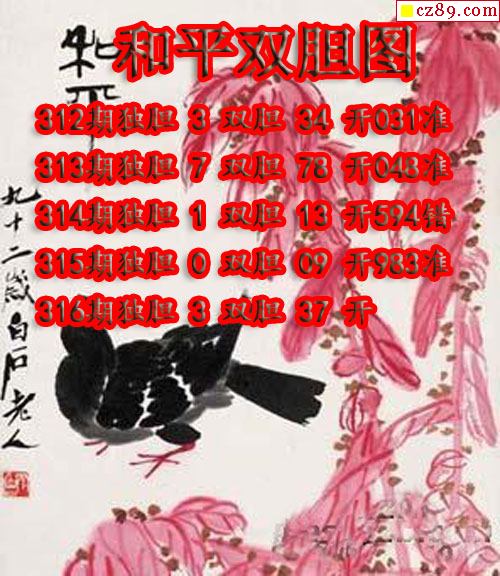 cz89.com
和平双胆图
和平
312期独胆 3 双胆 34 开031准
313期独胆 7 双胆 78 开048准
314期独胆 1 双胆 13 开594错
315期独胆 0 双胆 09 开983准
316期独胆 3 双胆 37 开
九十二岁白石老人